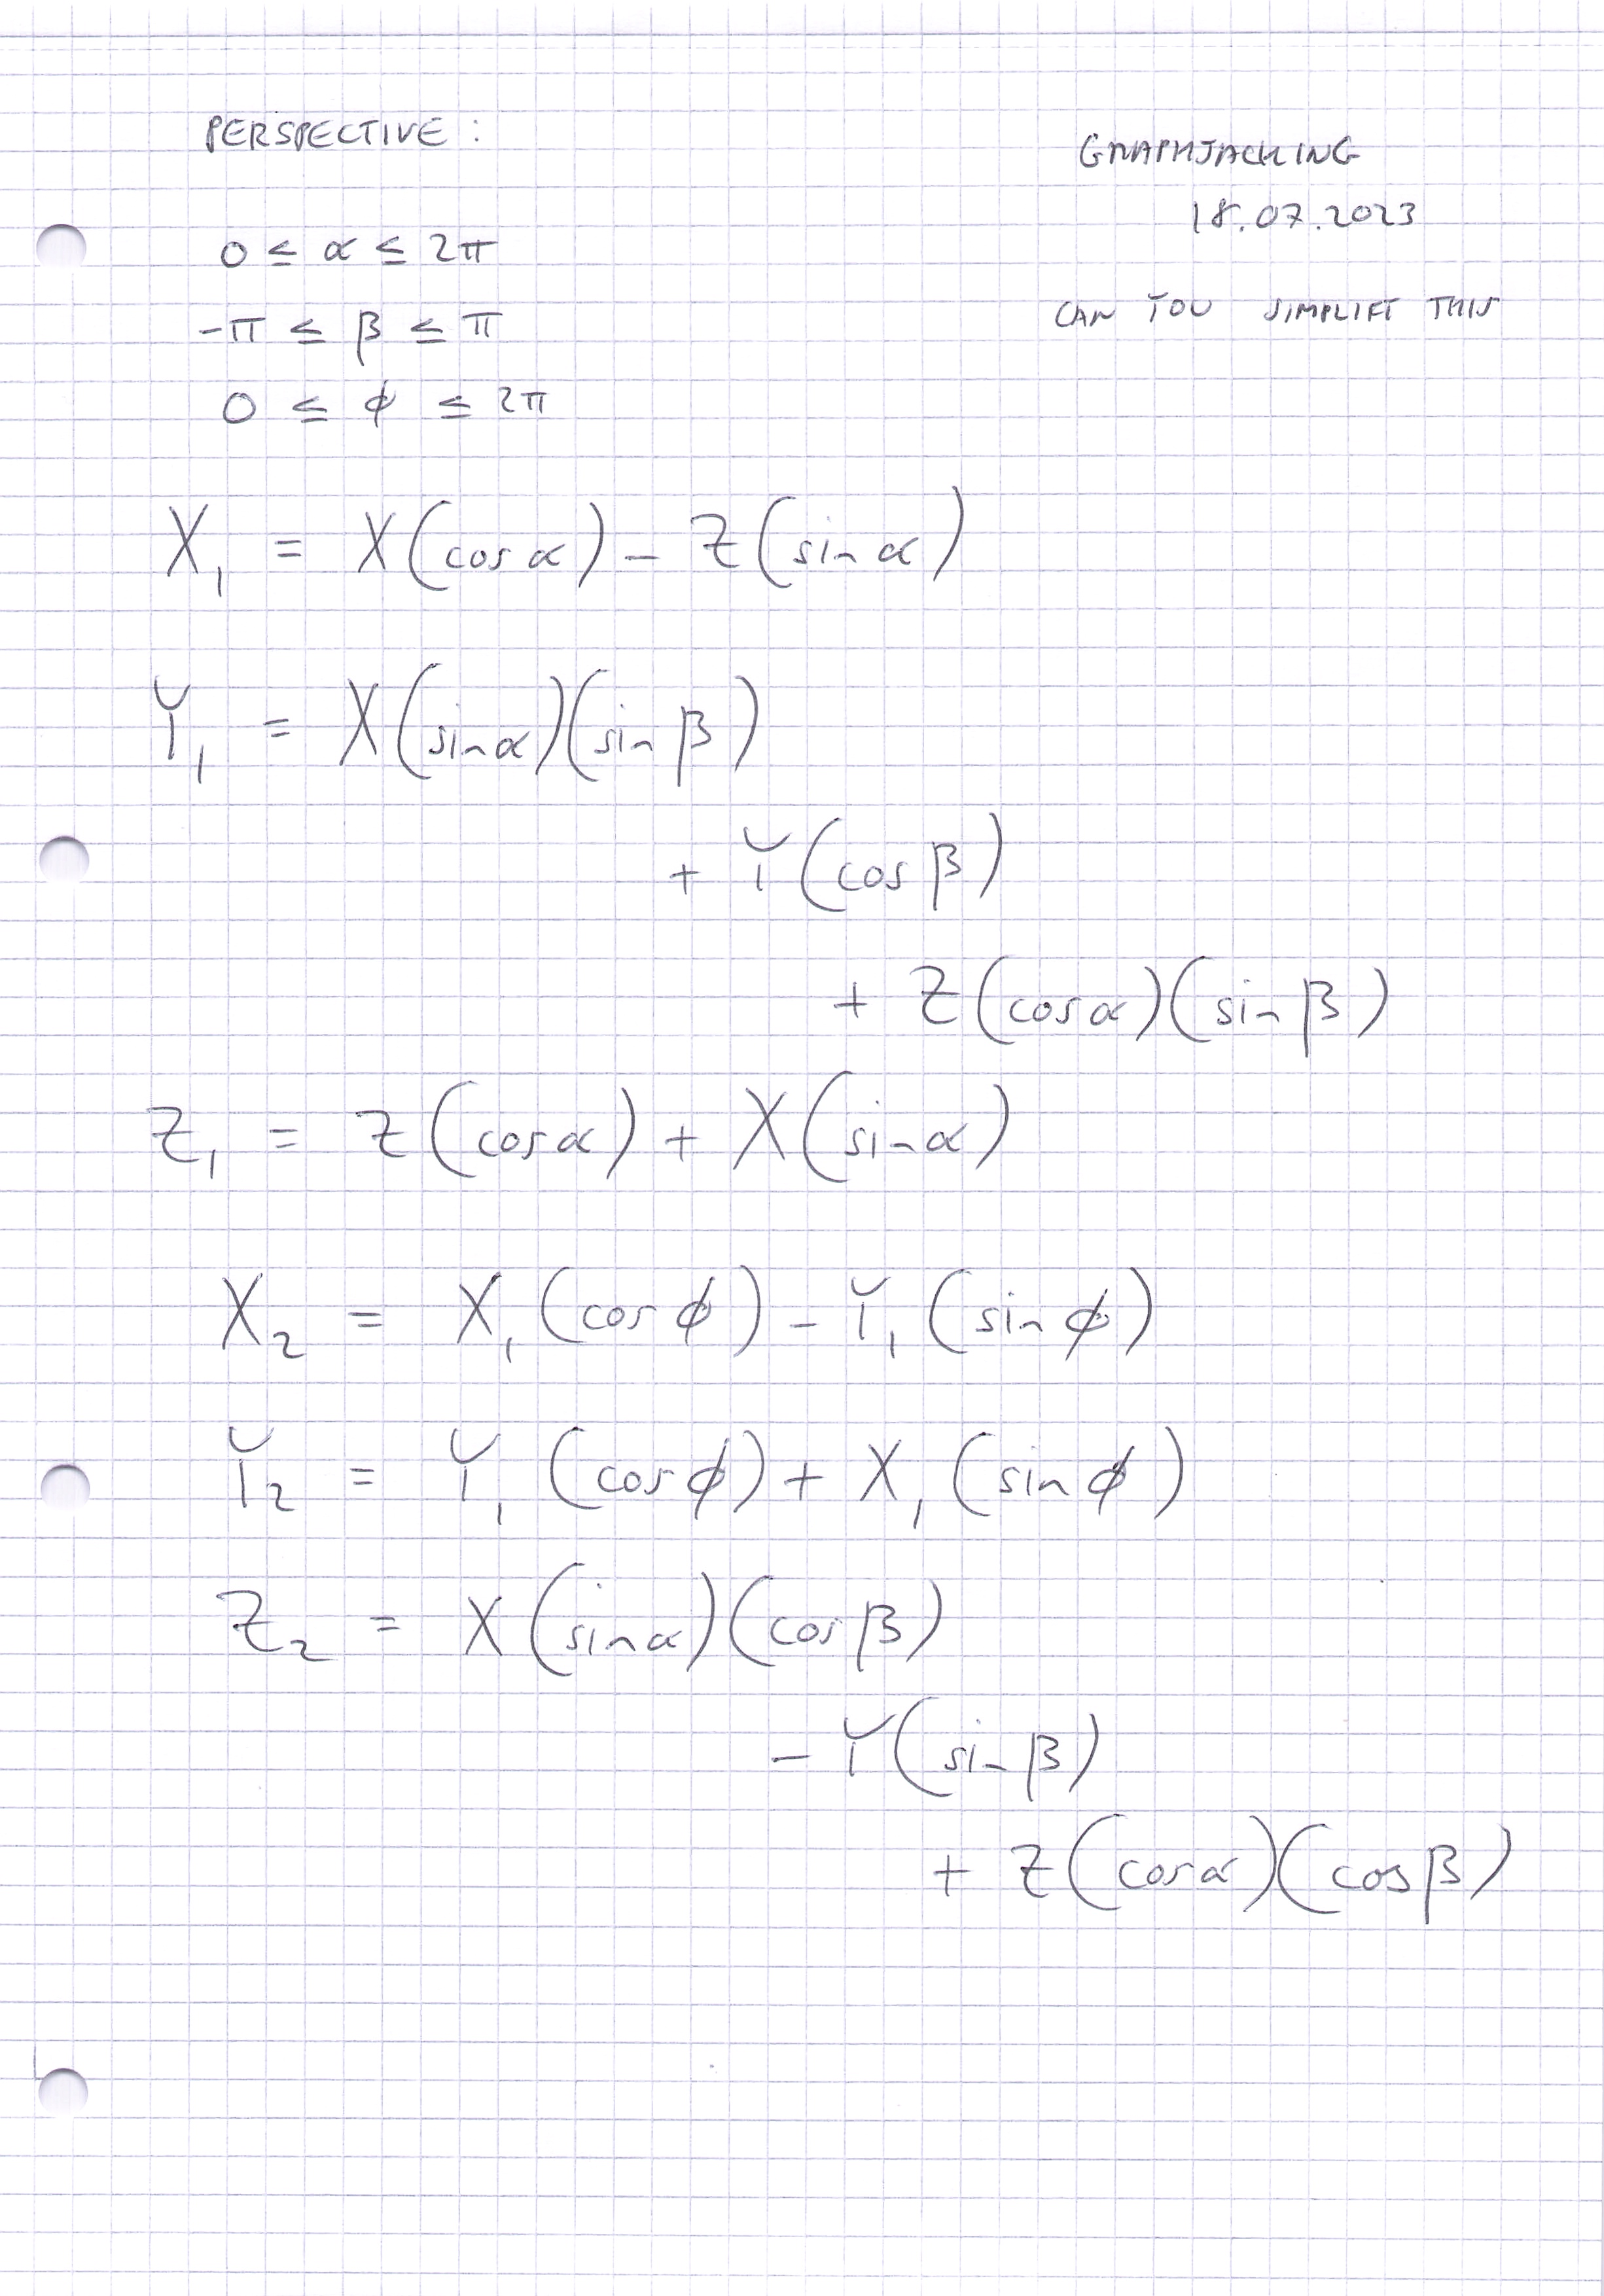 PERSPECTIVE :
GRAPHJACKING
18.07.2023
CAN YOU SIMPLIFY THIS
0 ≤ α ≤ 2π
-π ≤ β ≤ π
0 ≤ ϕ ≤ 2π
X₁ = X(cosα) - Z(sinα)
Y₁ = X(sinα)(sinβ)
+ Y(cosβ)
+ Z(cosα)(sinβ)
Z₁ = Z(cosα) + X(sinα)
X₂ = X₁(cosϕ) - Y₁(sinϕ)
Y₂ = Y₁(cosϕ) + X₁(sinϕ)
Z₂ = X(sinα)(cosβ)
- Y(sinβ)
+ Z(cosα)(cosβ)